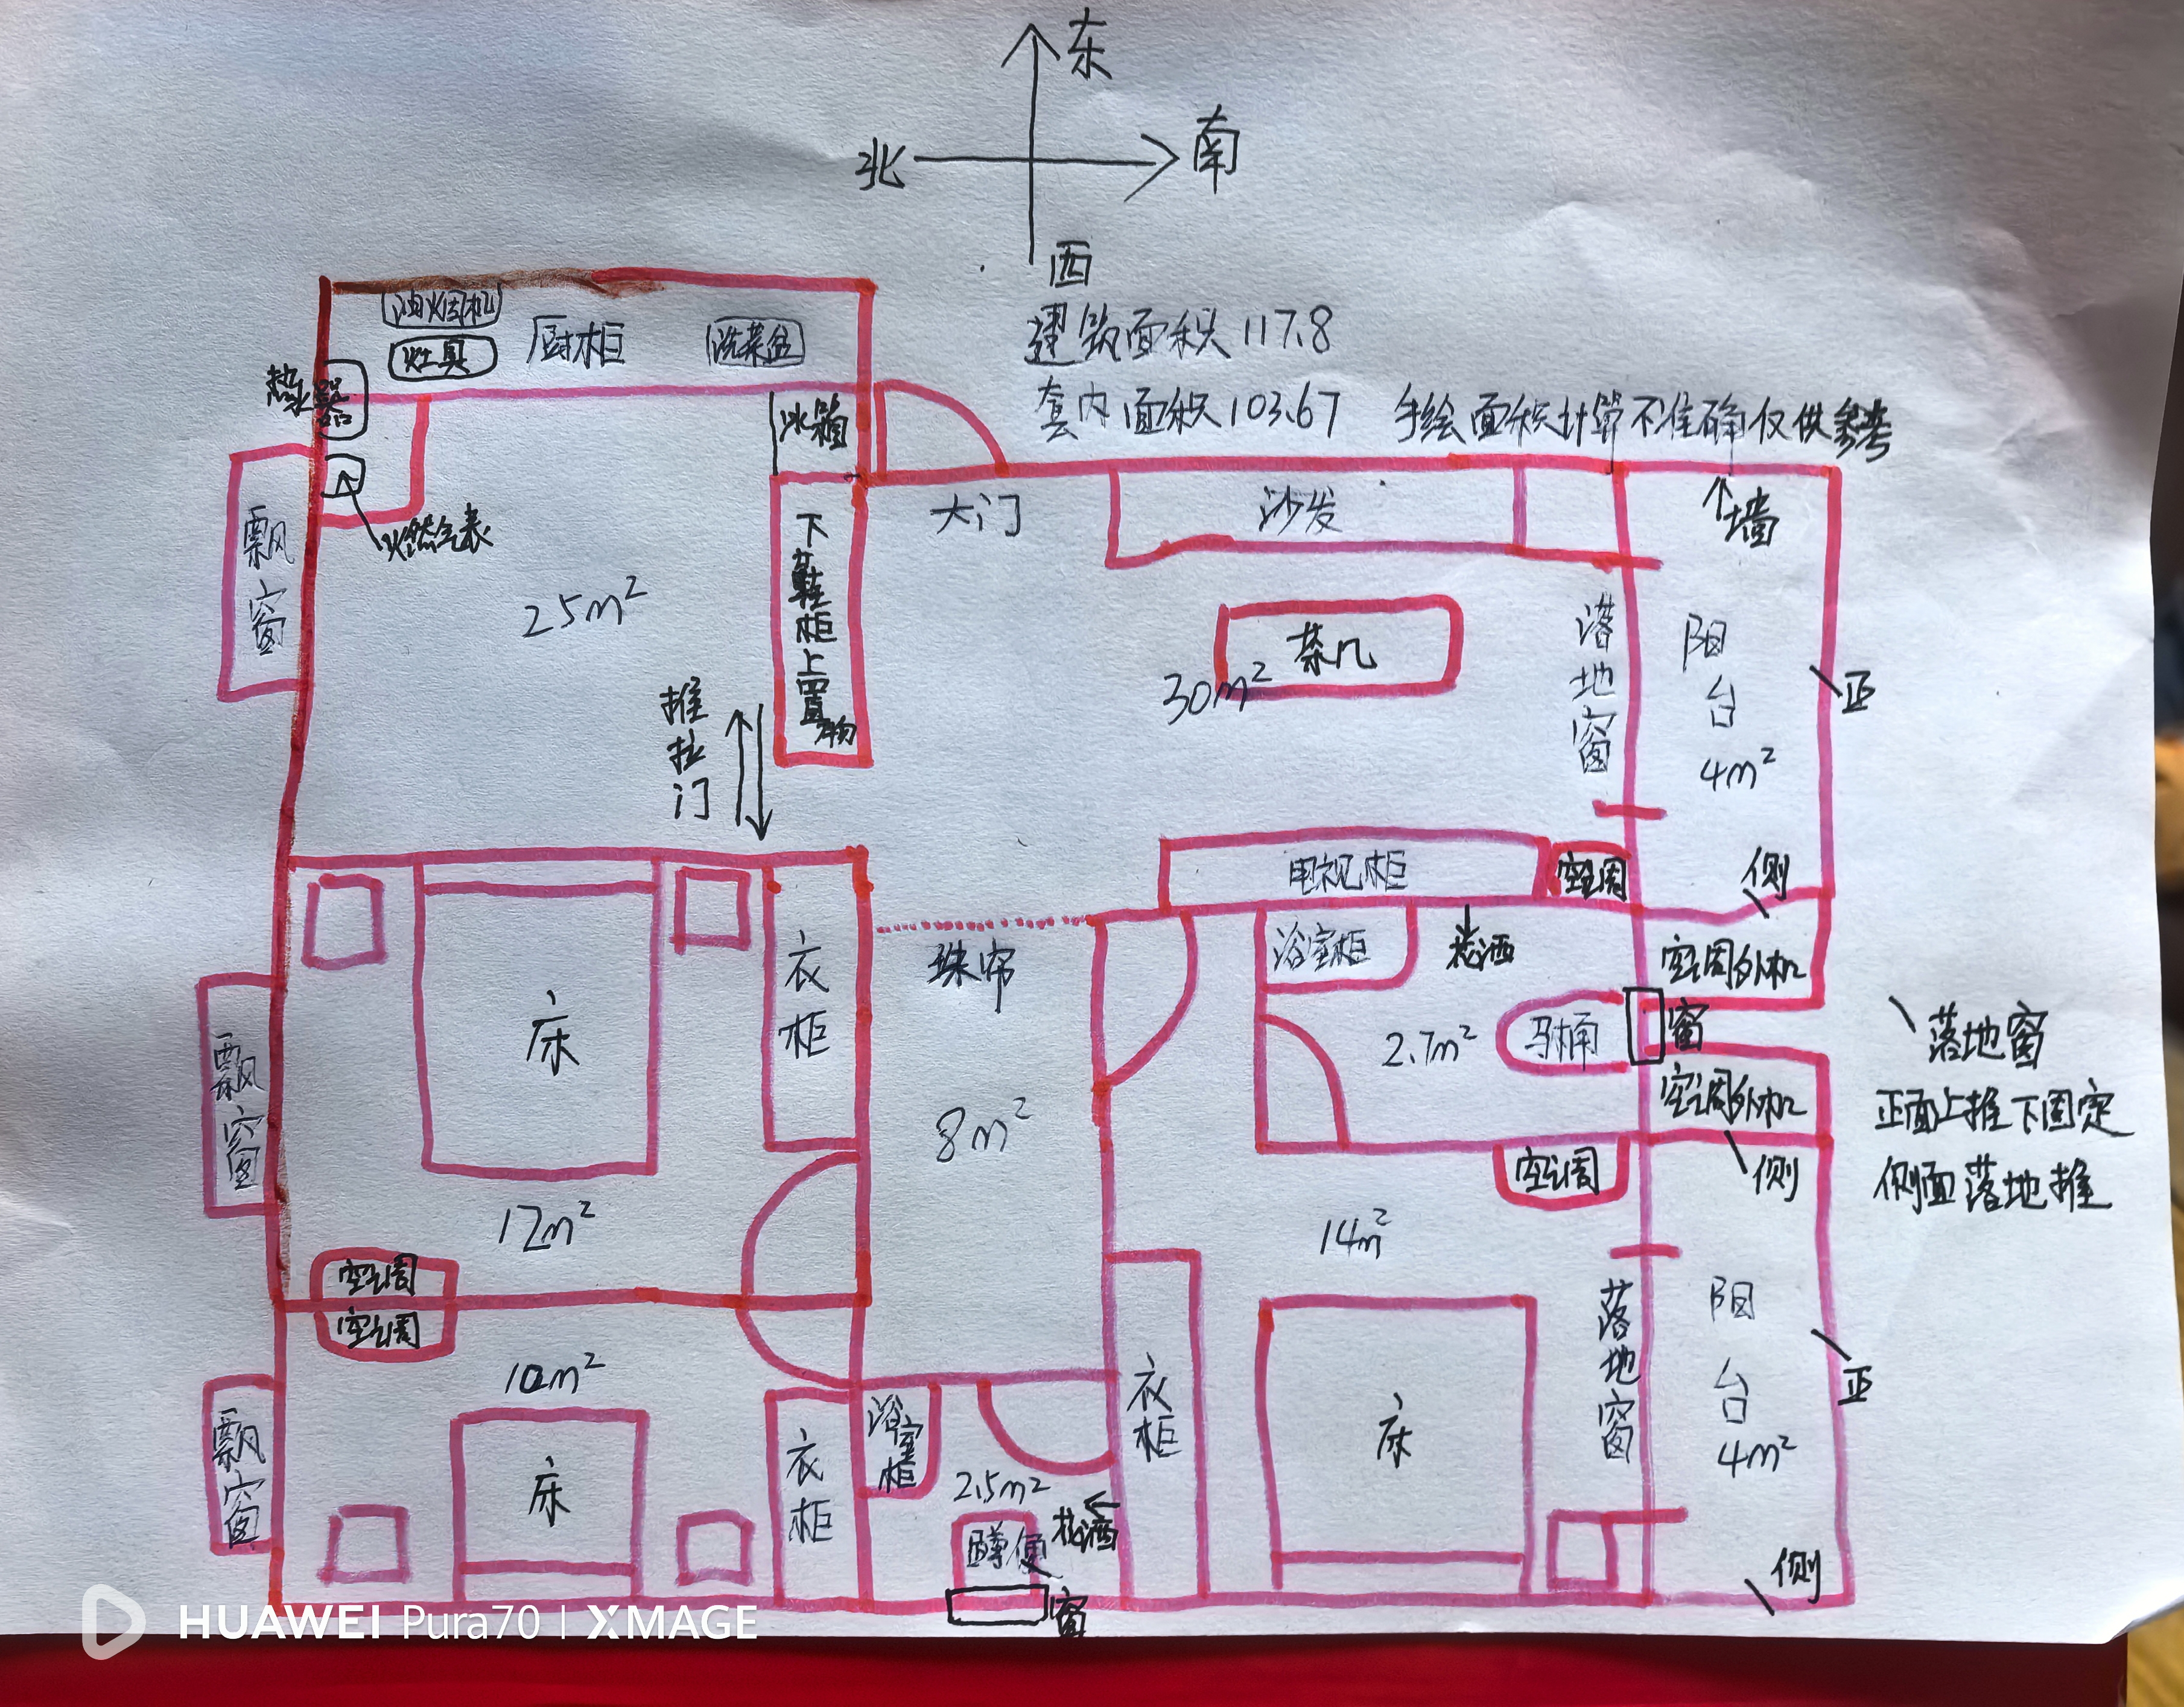 东
北
南
西
建筑面积117.8
套内面积103.67 手绘面积计算不准确仅供参考
油烟机
灶具
厨柜
洗菜盆
热水器
冰箱
飘窗
燃气表
25m²
下鞋柜上置物
推拉门
大门
沙发
墙
茶几
30m²
落地窗
阳台
4m²
正
电视柜
空调
侧
床
衣柜
珠帘
浴室柜
花洒
空调外机
2.7m²
马桶
窗
空调外机
落地窗
正面上推下固定
侧面落地推
飘窗
8m²
空调
侧
12m²
14m²
空调
空调
10m²
落地窗
阳台
4m²
正
飘窗
床
衣柜
浴室柜
2.5m²
花洒
蹲便
窗
衣柜
床
侧
HUAWEI Pura70 | XMAGE